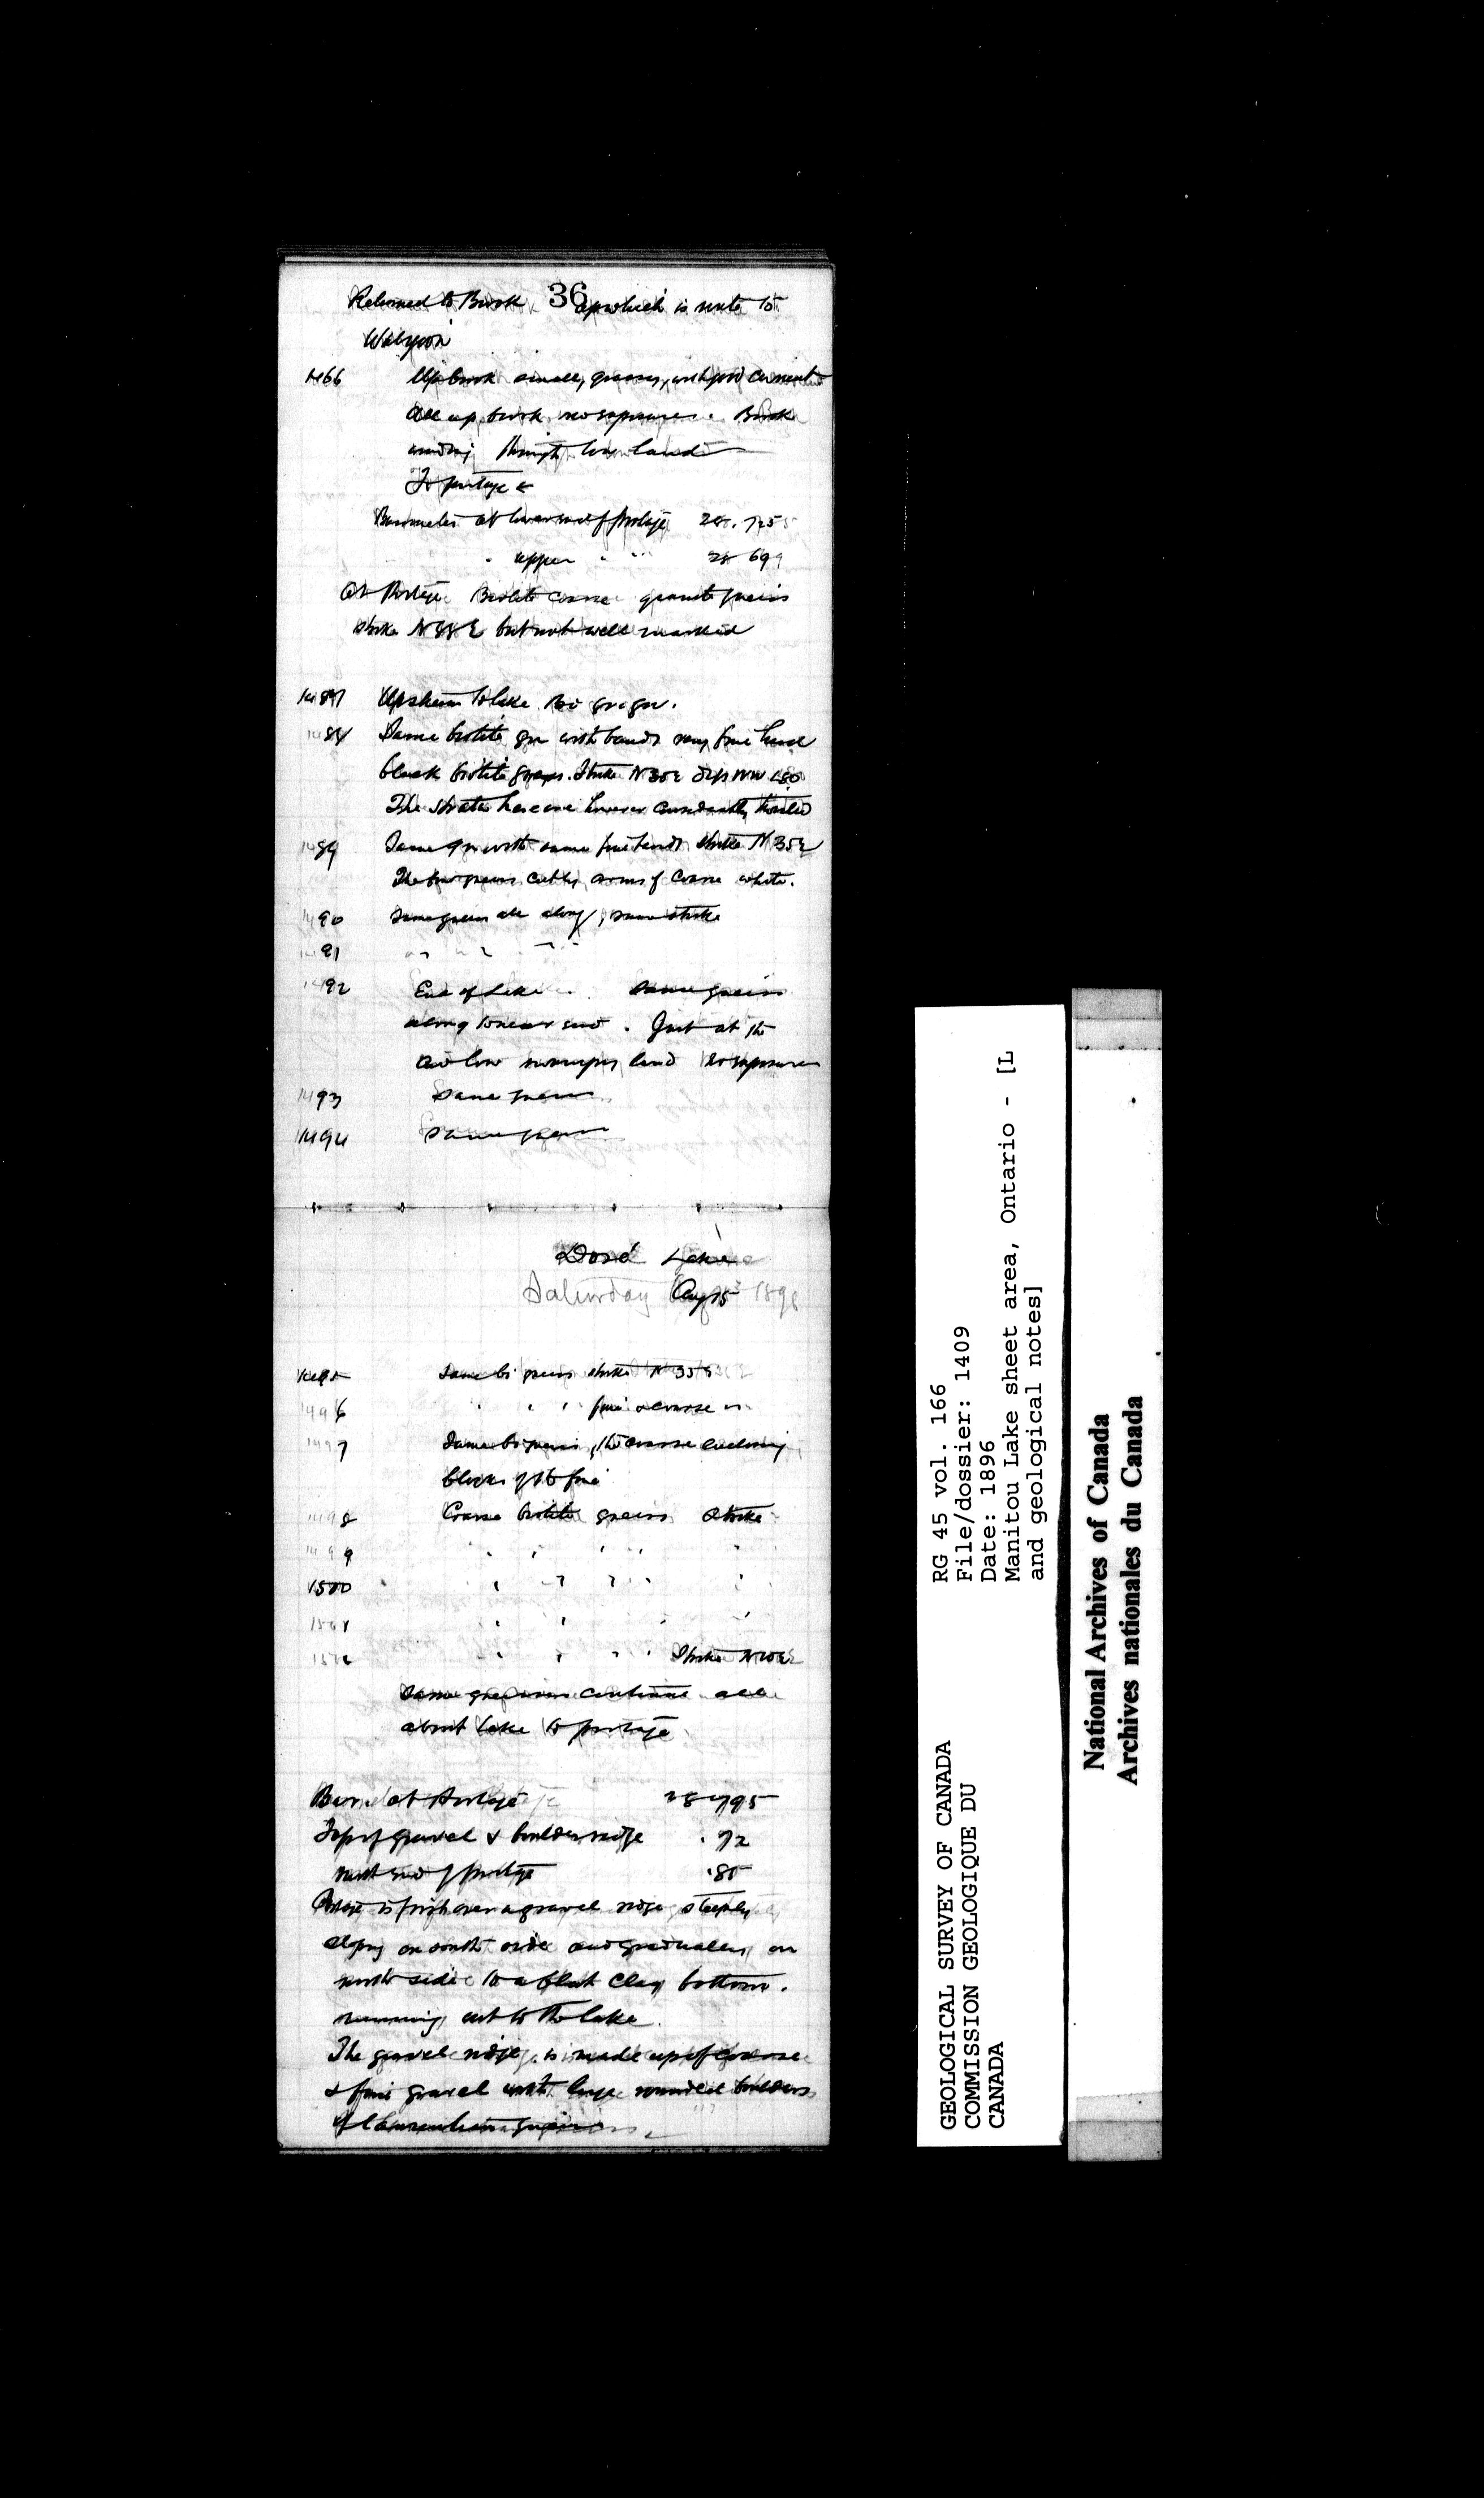 36
Returned to Brook up which is route to
Wabigoon
1466 Up brook small, grassy, with good current
All up brook no exposures. Brook
winding through low land
To portage
Barometer at lower end of portage 28.725
" upper " " 28 699
At Portage Biotite coarse granite gneiss
strike N 55 E but not well marked
1487 Up stream to lake Bio gr. gn.
1488 Same biotite gn with bands very fine hard
black biotite gneiss. Strike N 30 E dip NW <80
The strata here are however considerably twisted
1489 Same gn with same fine bands strike N 35 E
The fine gneiss cut by arms of coarse white.
1490 Same gneiss all along, same strike
1491 " " " "
1492 End of Lake. Same gneiss
along to near end. Just at the
end low swampy land No exposures
1493 Same gneiss
1494 Same gneiss
Doré Lake
Saturday Aug 15 1896
1495 Same bi gneiss strike N 35 E
1496 " " " fine & coarse
1497 Same bi gneiss, the coarse enclosing
blocks of the fine
1498 Coarse biotite gneiss Strike
1499 " " " " "
1500 " " " " "
1501 " " " "
1502 " " " " Strike N 20 E
Same gneisses continue all
about lake to portage
Bar. at Portage 28 795
Top of gravel & boulder ridge .72
north end of portage .85
Portage is high over a gravel ridge steeply
sloping on south side and gradually on
north side to a flat clay bottom.
running out to the lake.
The gravel ridge is made up of coarse
& fine gravel with large rounded boulders
of Laurentian gneiss
RG 45 vol. 166
File/dossier: 1409
Date: 1896
Manitou Lake sheet area, Ontario - [L
and geological notes]
GEOLOGICAL SURVEY OF CANADA
COMMISSION GEOLOGIQUE DU
CANADA
National Archives of Canada
Archives nationales du Canada